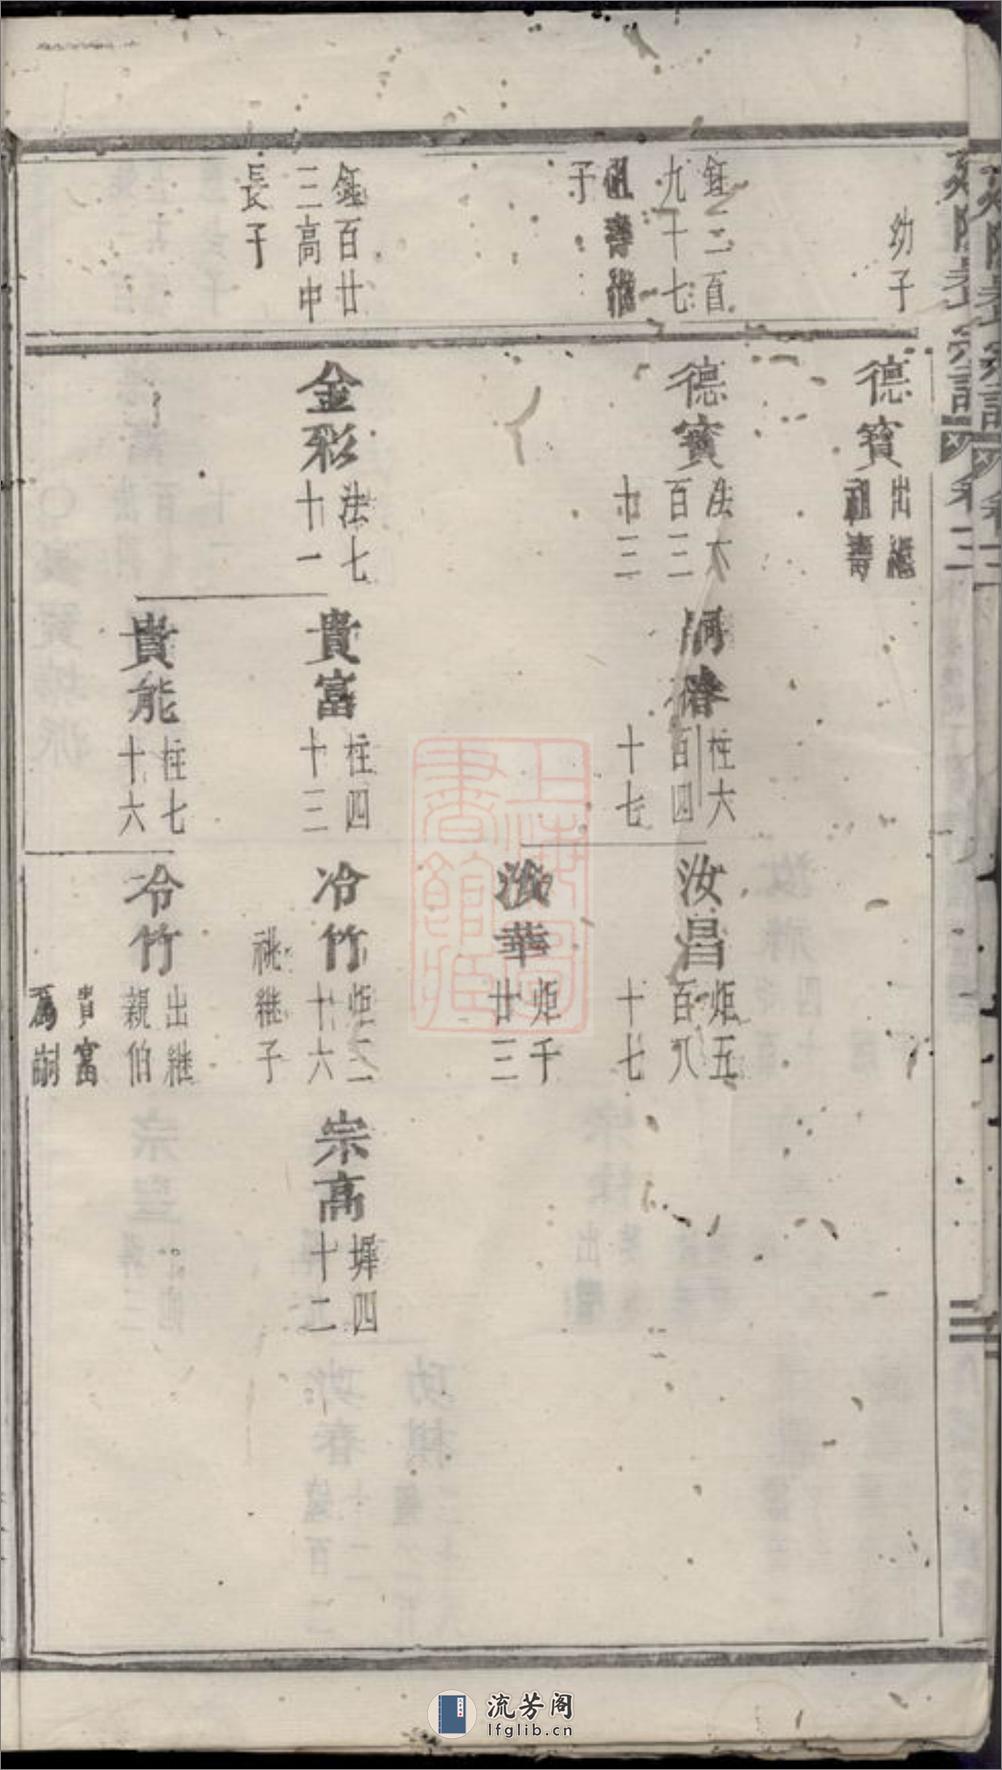 幼子
鉦二百
九十七
祖壽繼
子
鉦百廿
三高中
長子
德寶
出繼
祖壽
德寶
法六
百三
十三
金彩
法七
十一
柱六
百四
十七
貴富
柱四
十三
貴能
柱七
十六
汝昌
炬五
百八
十七
汝華
炬千
廿三
冷竹
炬二
十六
祧繼子
冷竹
出繼
親伯
貴富
為嗣
宗高
墀四
十二
上海圖
書館藏
流芳阁
lfglib.cn